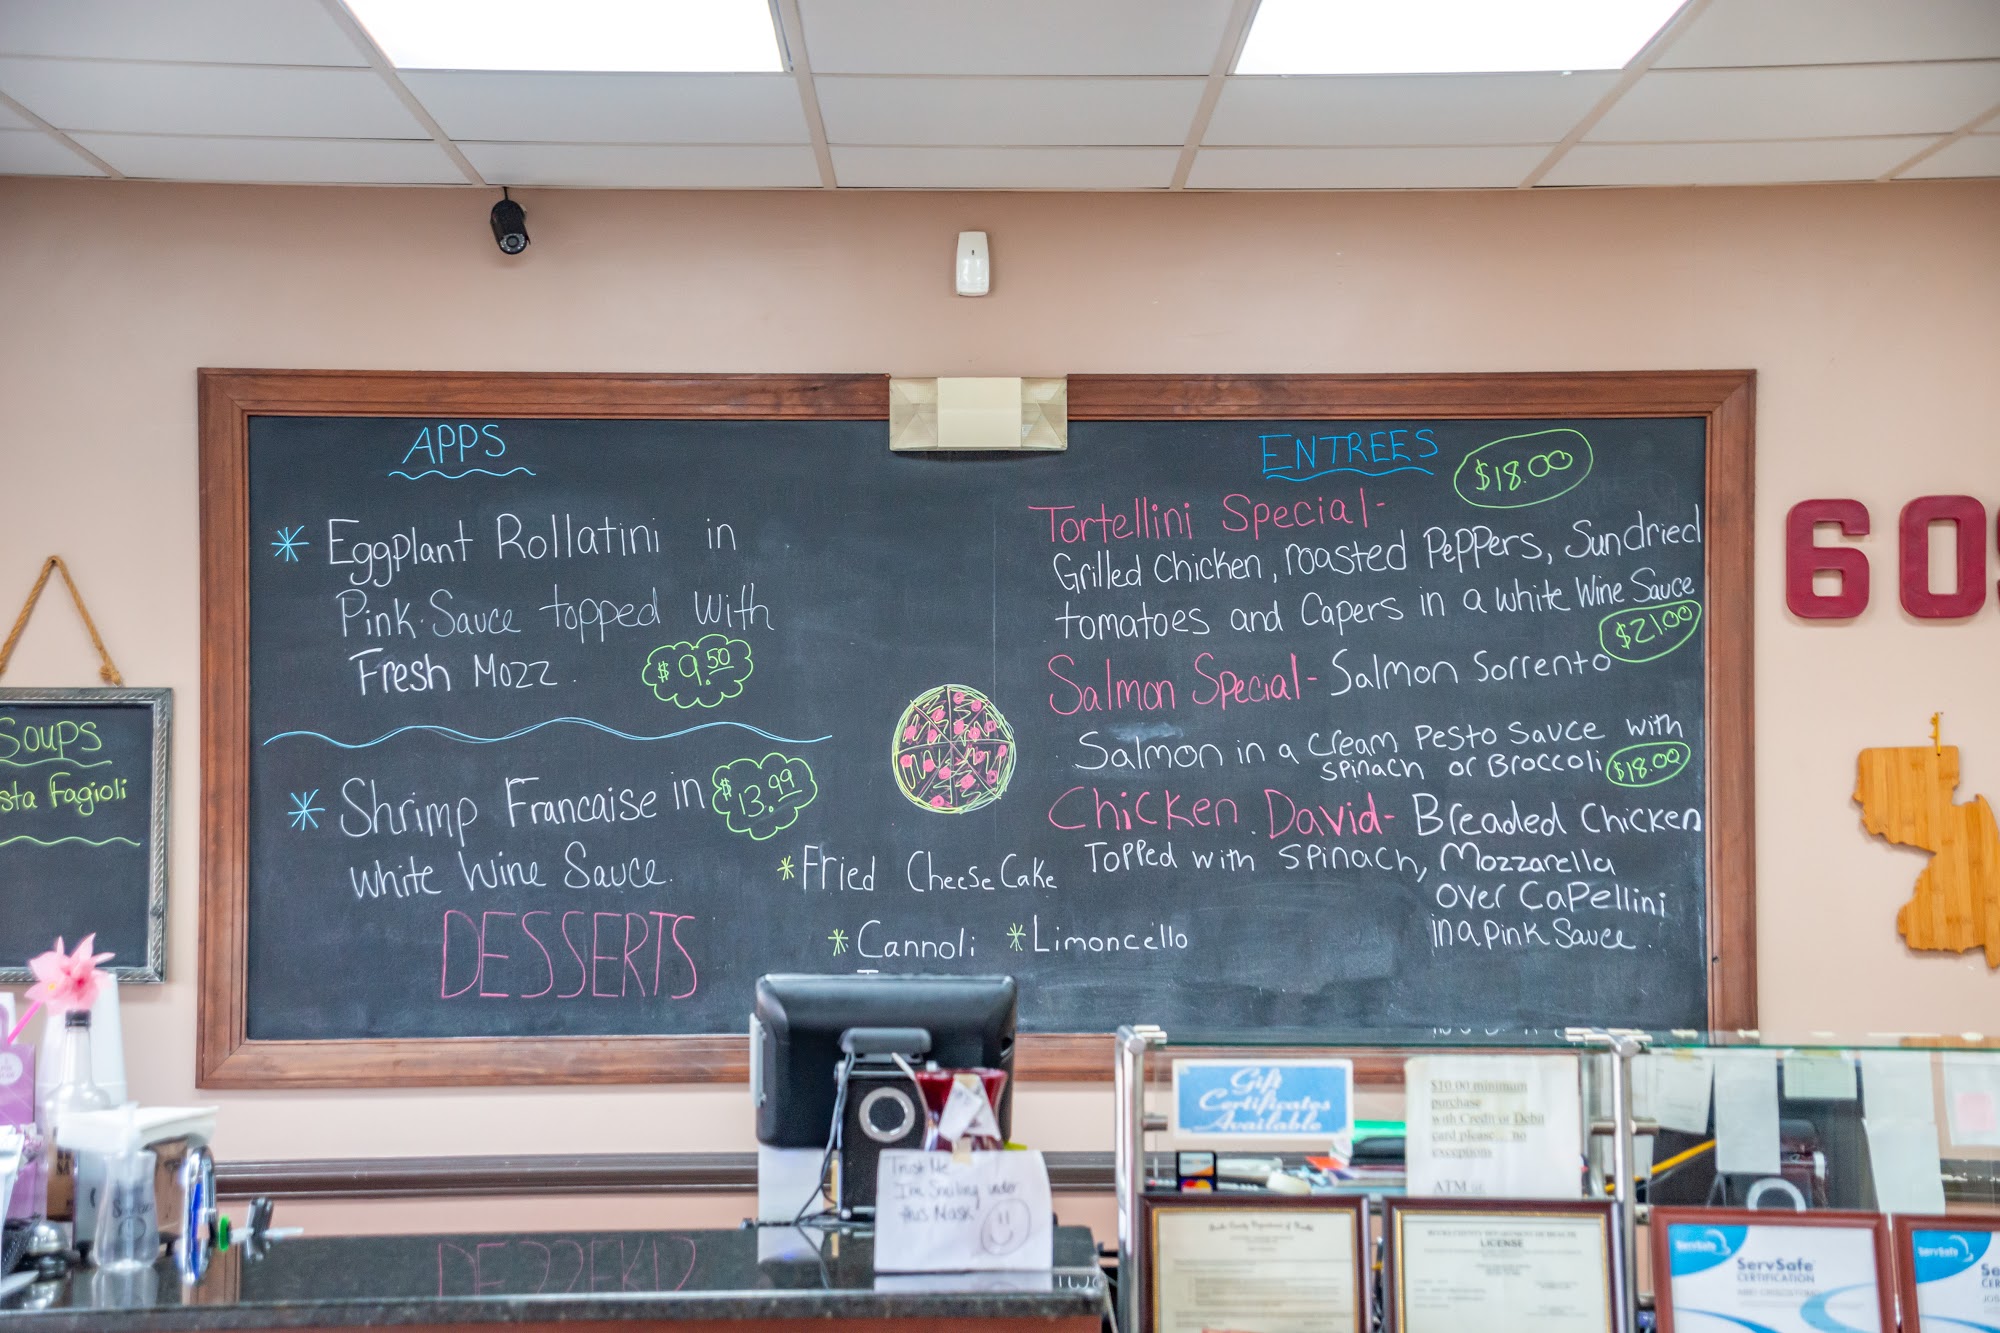 APPS
* Eggplant Rollatini in
Pink Sauce topped with
Fresh Mozz.
$9.50
* Shrimp Francaise in
$13.99
white Wine Sauce.
DESSERTS
* Fried CheeseCake
* Cannoli * Limoncello
ENTREES
$18.00
Tortellini Special-
Grilled Chicken, roasted Peppers, Sundried
tomatoes and Capers in a white Wine Sauce
$21.00
Salmon Special- Salmon Sorrento
Salmon in a Cream Pesto Sauce with
spinach or Broccoli
$18.00
Chicken David- Breaded Chicken
Topped with spinach, Mozzarella
over Capellini
in a pink Sauce.
Soups
sta Fagioli
60
Gift
Certificates
Available
$10.00 minimum
purchase
with Credit or Debit
card please... no
exceptions
ATM
Trust Me
I'm Smiling under
this Mask
LICENSE
ServSafe
ServSafe
CERTIFICATION
ServSafe
Se
CER
JOS